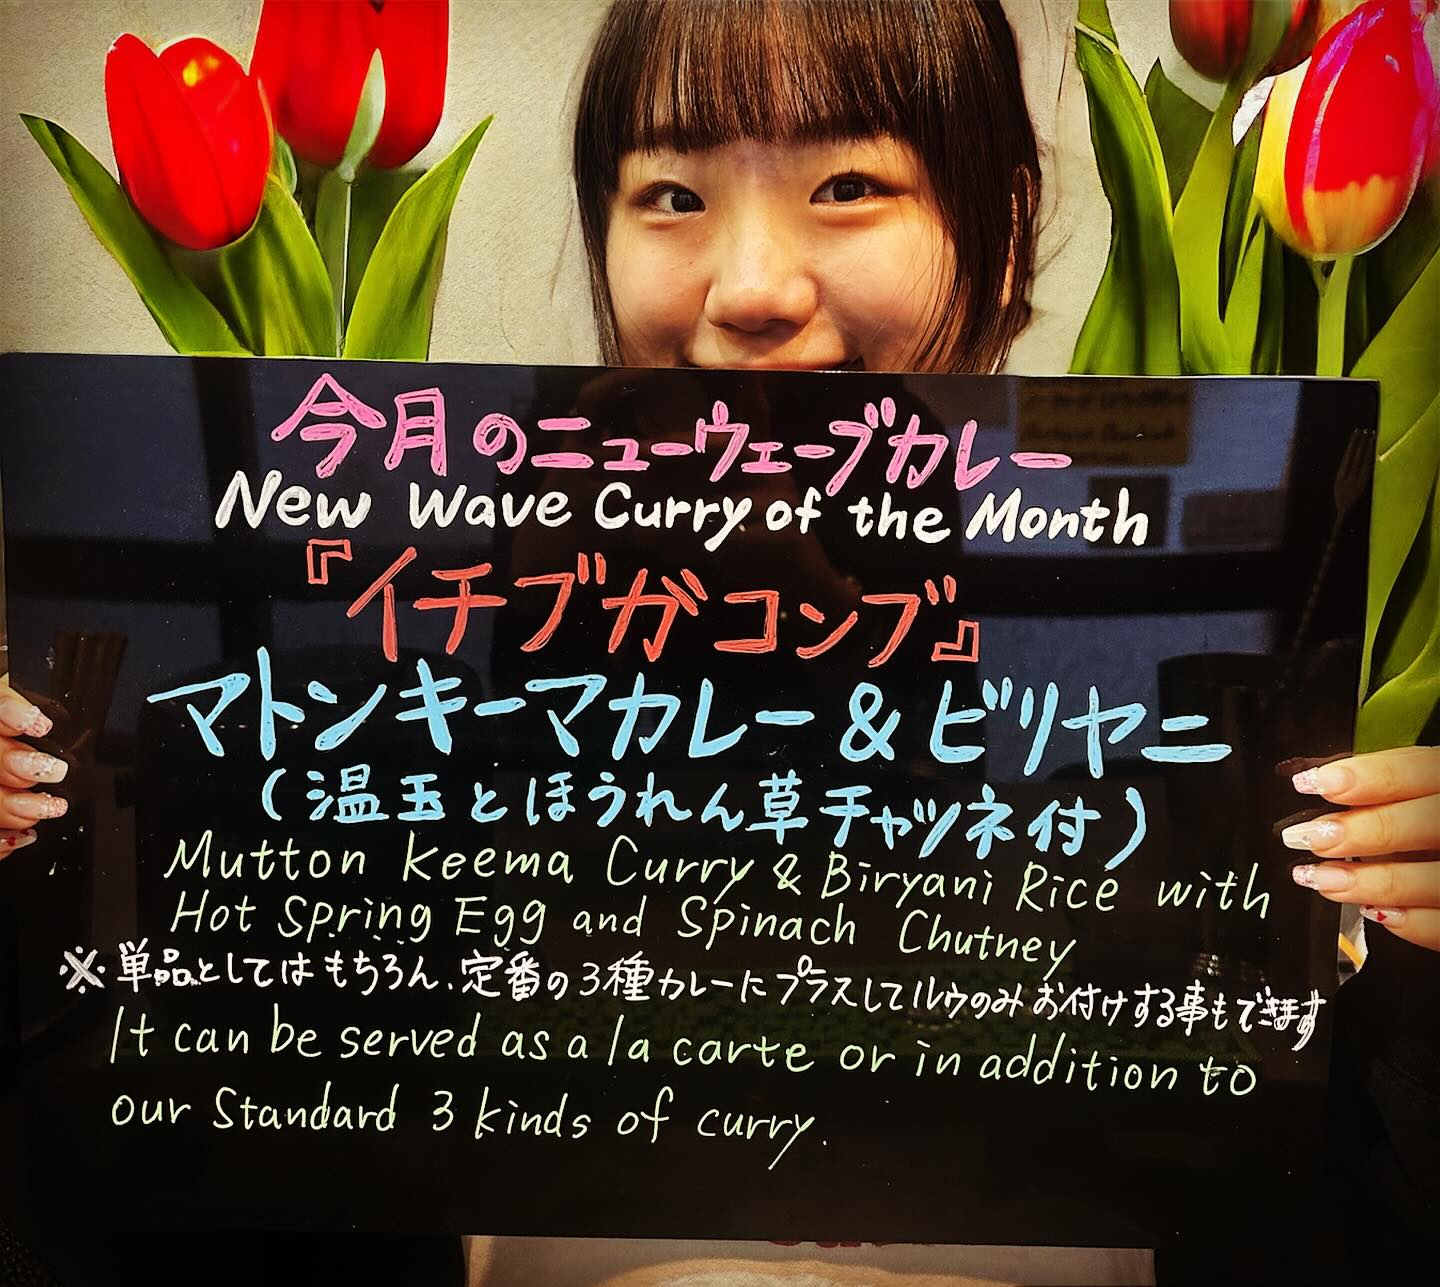 今月のニューウェーブカレー
New Wave Curry of the Month
『イチブガコンブ』
マトンキーマカレー&ビリヤニ
(温玉とほうれん草チャツネ付)
Mutton Keema Curry & Biryani Rice with
Hot Spring Egg and Spinach Chutney
※単品としてはもちろん、定番の3種カレーにプラスしてルウのみお付けする事もできます
It can be served as a la carte or in addition to
our Standard 3 kinds of curry.